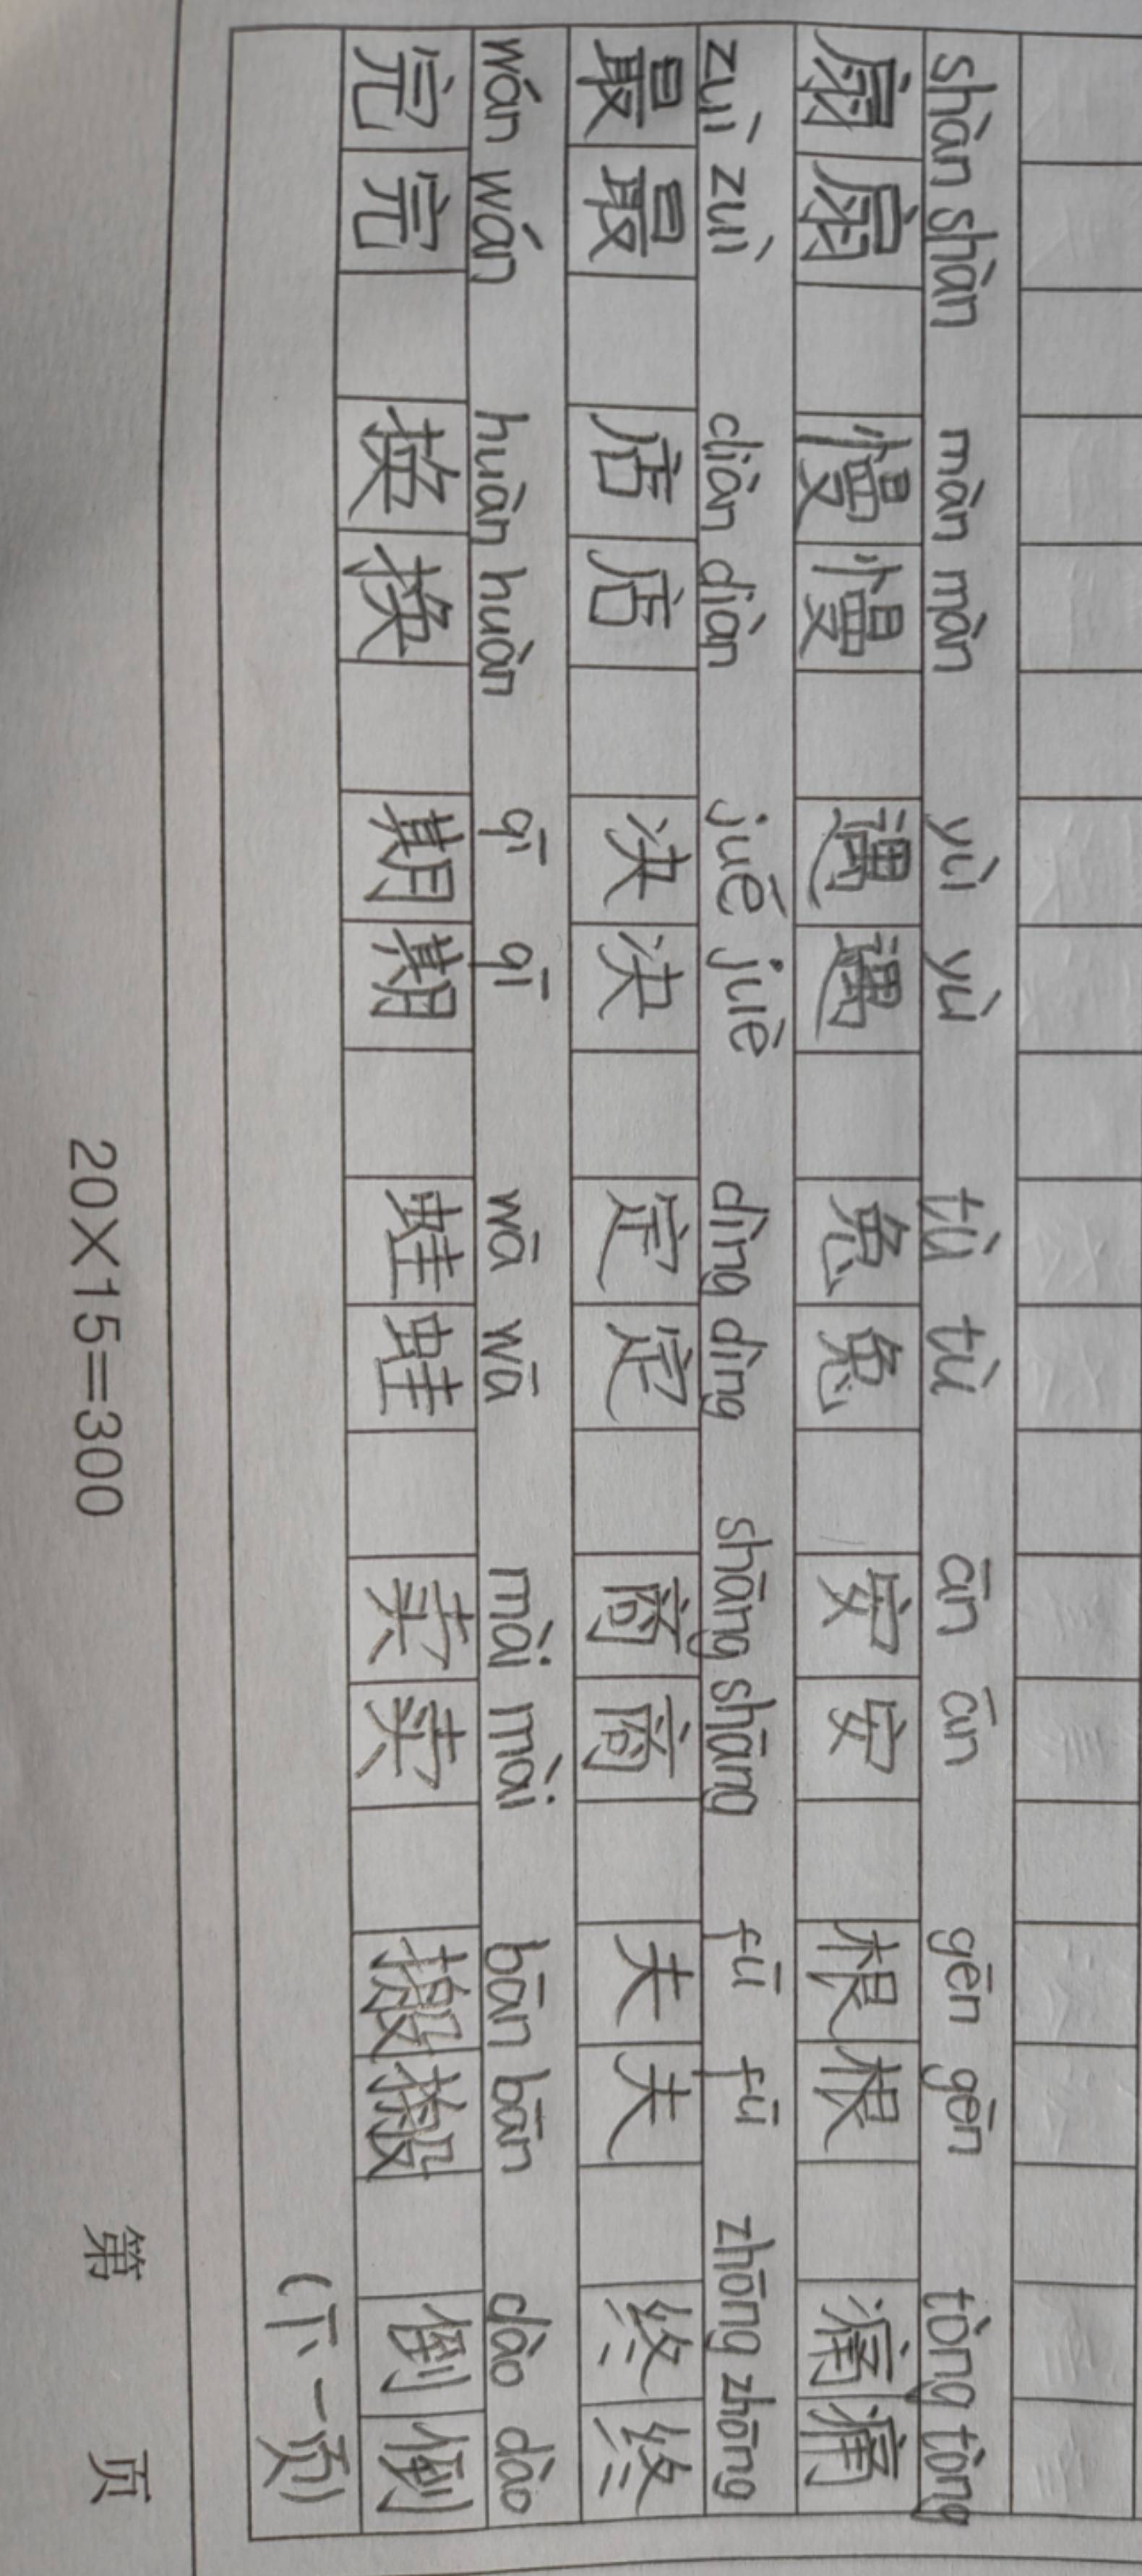 shàn shàn màn màn yù yù tù tù ān ān gēn gēn tòng tòng
扇扇 慢慢 遇遇 兔兔 安安 根根 痛痛
zuì zuì diàn diàn juē juē dìng dìng shāng shāng fū fū zhōng zhōng
最最 店店 决决 定定 商商 夫夫 终终
wán wán huàn huàn qī qī wā wā mài mài bān bān dào dào
完完 换换 期期 蛙蛙 卖卖 搬搬 倒倒
(下一页)
20×15=300 第 页